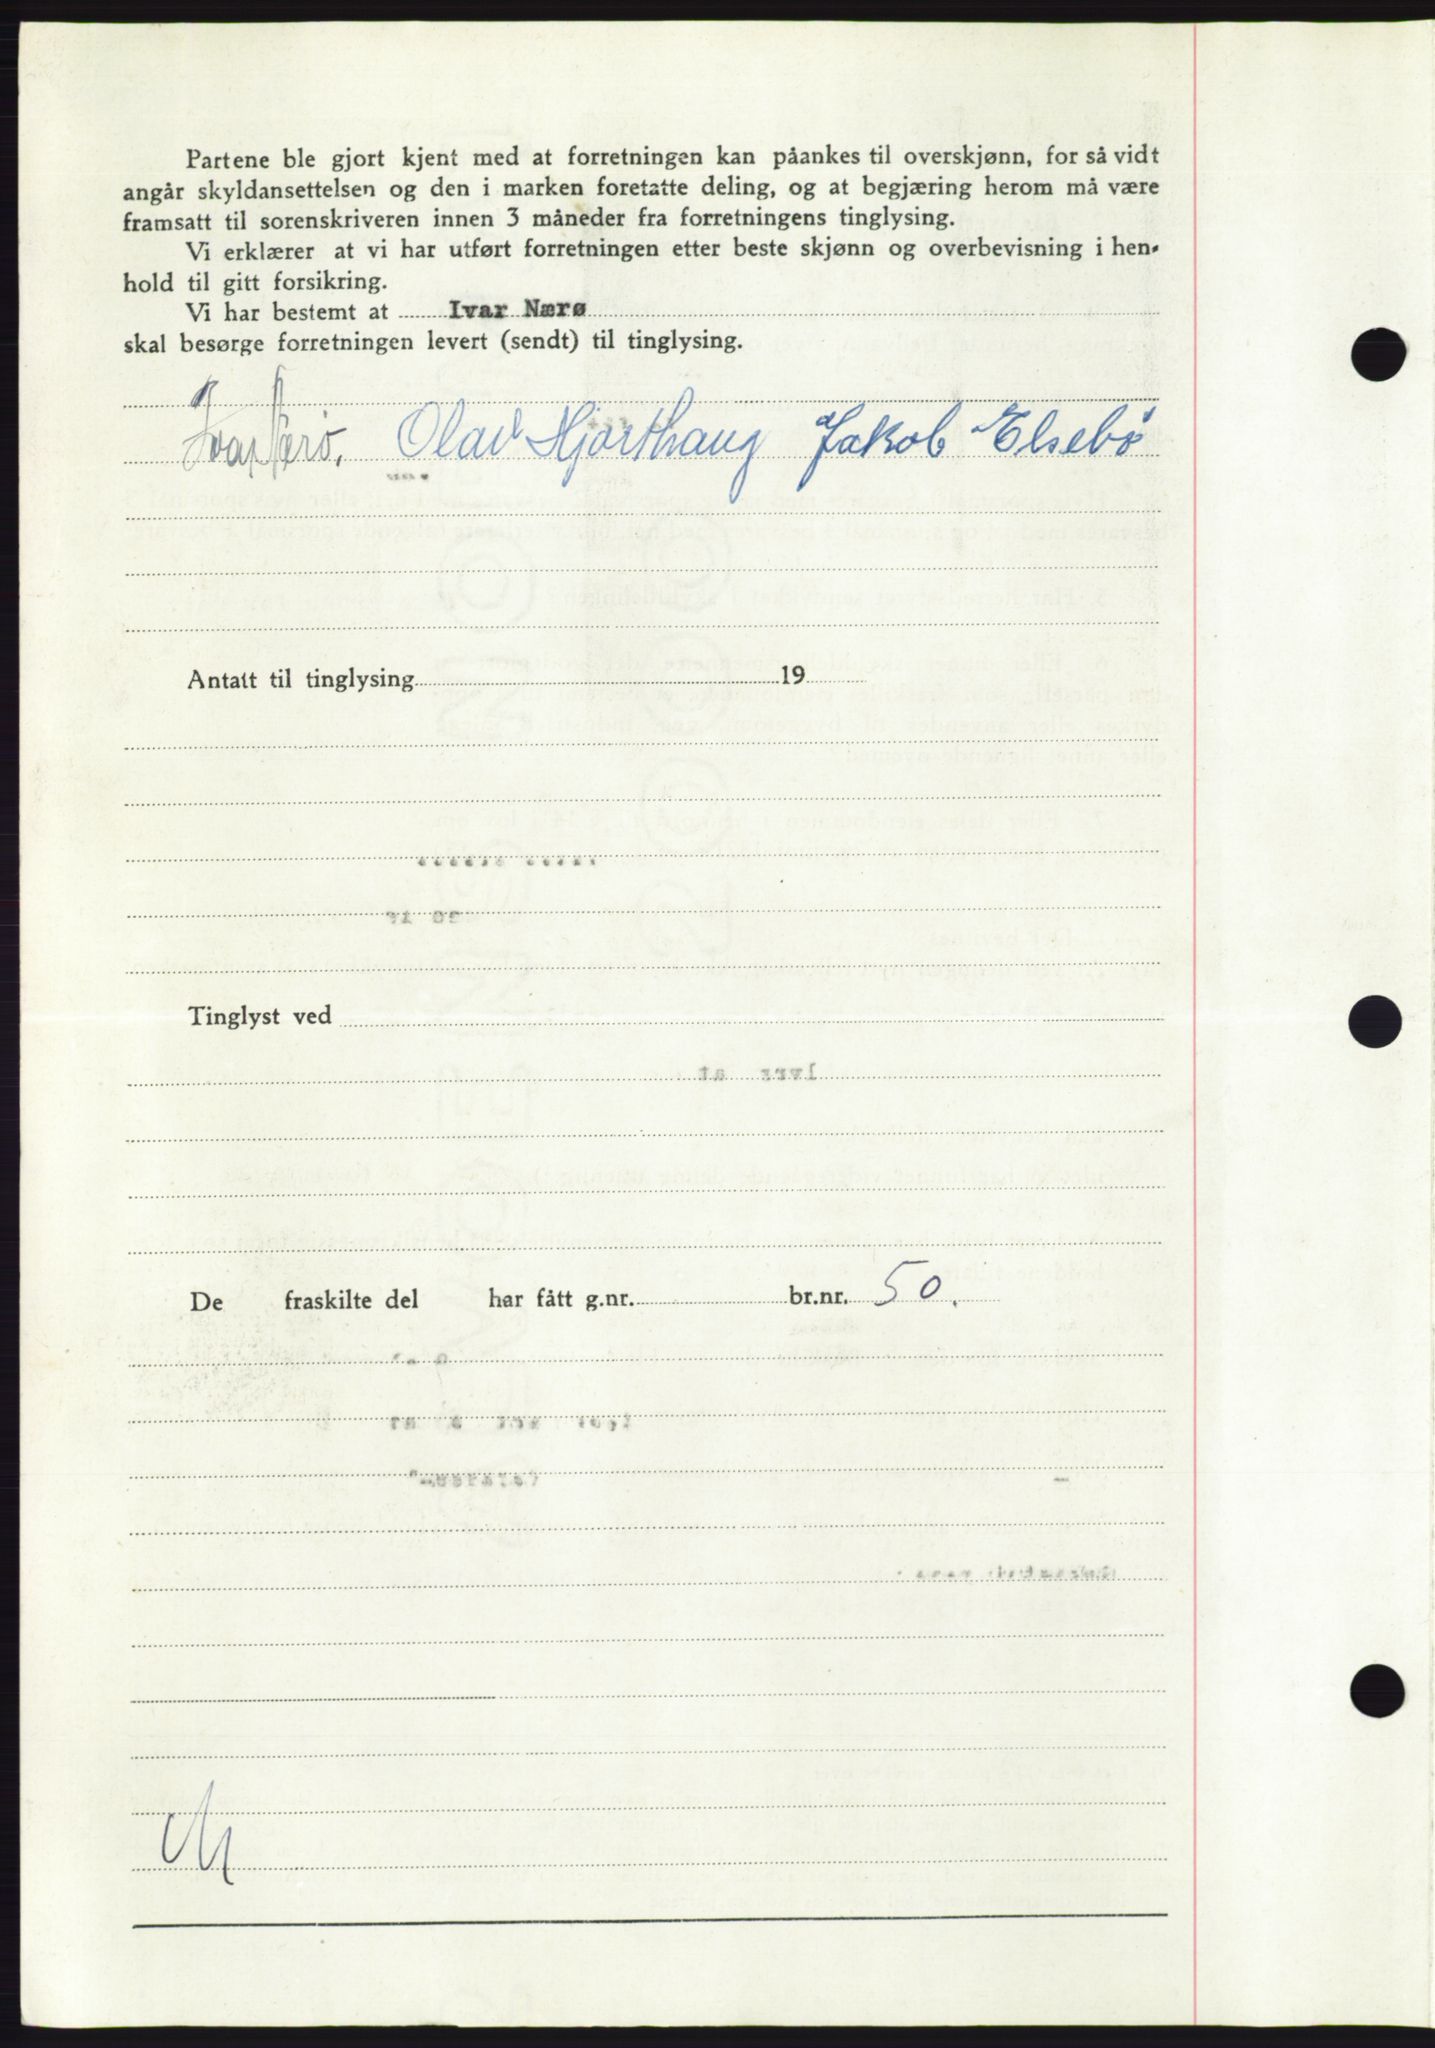 Partene ble gjort kjent med at forretningen kan påankes til overskjønn, for så vidt
angår skyldansettelsen og den i marken foretatte deling, og at begjæring herom må være
framsatt til sorenskriveren innen 3 måneder fra forretningens tinglysing.
Vi erklærer at vi har utført forretningen etter beste skjønn og overbevisning i hen-
hold til gitt forsikring.
Vi har bestemt at Ivar Nærø
skal besørge forretningen levert (sendt) til tinglysing.
Ivar Nærø. Olav Hjorthaug Jakob Elsebø
Antatt til tinglysing 19
Tinglyst ved
De fraskilte del har fått g.nr. br.nr. 50.